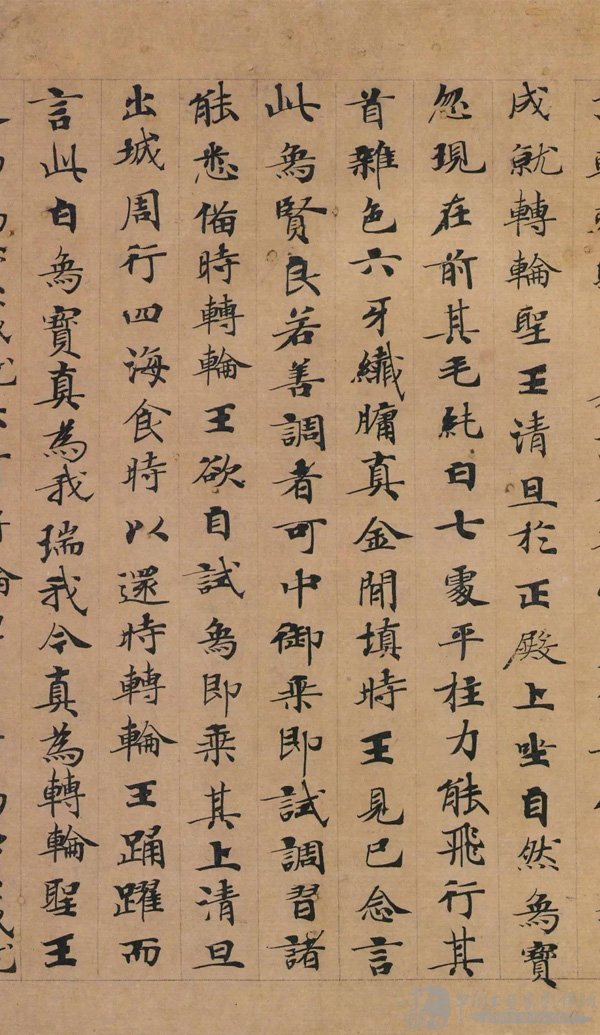 成就轉輪聖王清旦於正殿上坐自然象寶
忽現在前其毛純白七處平柱力能飛行其
首雜色六牙纖𦟛真金間填時王見已念言
此象賢良若善調者可中御乘即試調習諸
能悉俻時轉輪王欲自試象即乘其上清旦
出城周行四海食時以還時轉輪王踊躍而
言此白象寶真為我瑞我今真為轉輪聖王